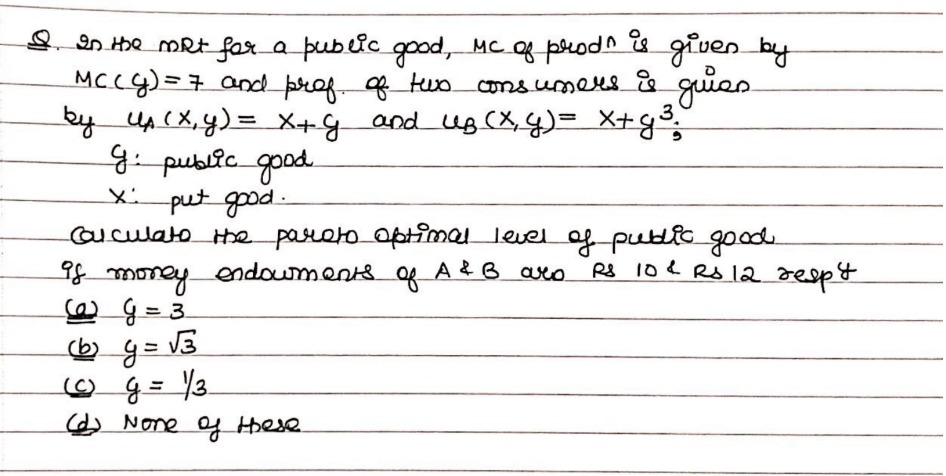 Q. In the mRt for a public good, MC of prodn is given by
MC(y) = 7 and pref. of two consumers is given
by uA (x,y) = x+y and uB (x,y) = x+y³;
y: public good
x: pvt good.
Calculate the pareto optimal level of public good
if money endowments of A & B are Rs 10 & Rs 12 resp't
(a) y = 3
(b) y = √3
(c) y = 1/3
(d) None of these